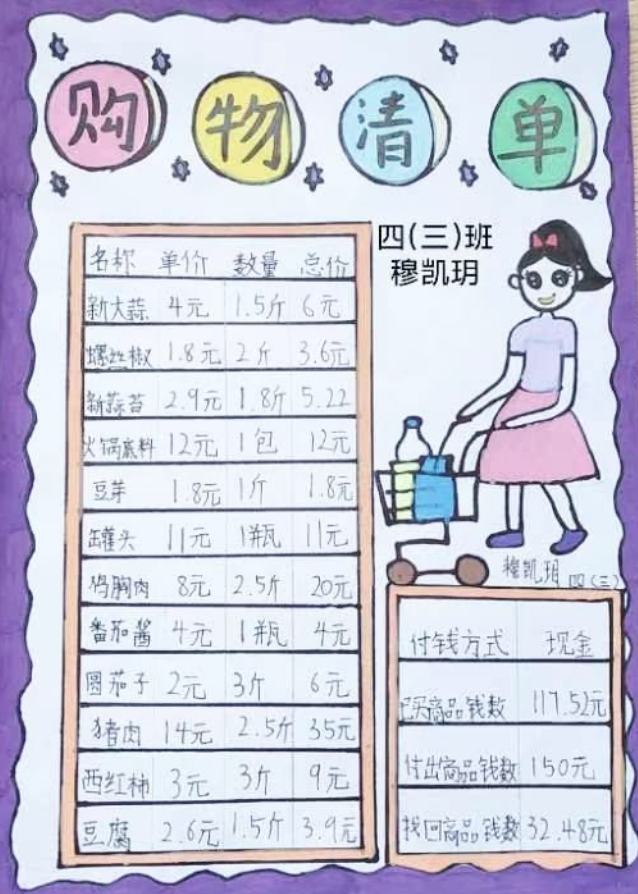 购物清单
四(三)班
穆凯玥
名称 单价 数量 总价
新大蒜 4元 1.5斤 6元
螺丝椒 1.8元 2斤 3.6元
新蒜苔 2.9元 1.8斤 5.22
火锅底料 12元 1包 12元
豆芽 1.8元 1斤 1.8元
罐头 11元 1瓶 11元
鸡胸肉 8元 2.5斤 20元
番茄酱 4元 1瓶 4元
圆茄子 2元 3斤 6元
猪肉 14元 2.5斤 35元
西红柿 3元 3斤 9元
豆腐 2.6元 1.5斤 3.9元
穆凯玥 四(三)
付钱方式 现金
已买商品钱数 117.52元
付出商品钱数 150元
找回商品钱数 32.48元